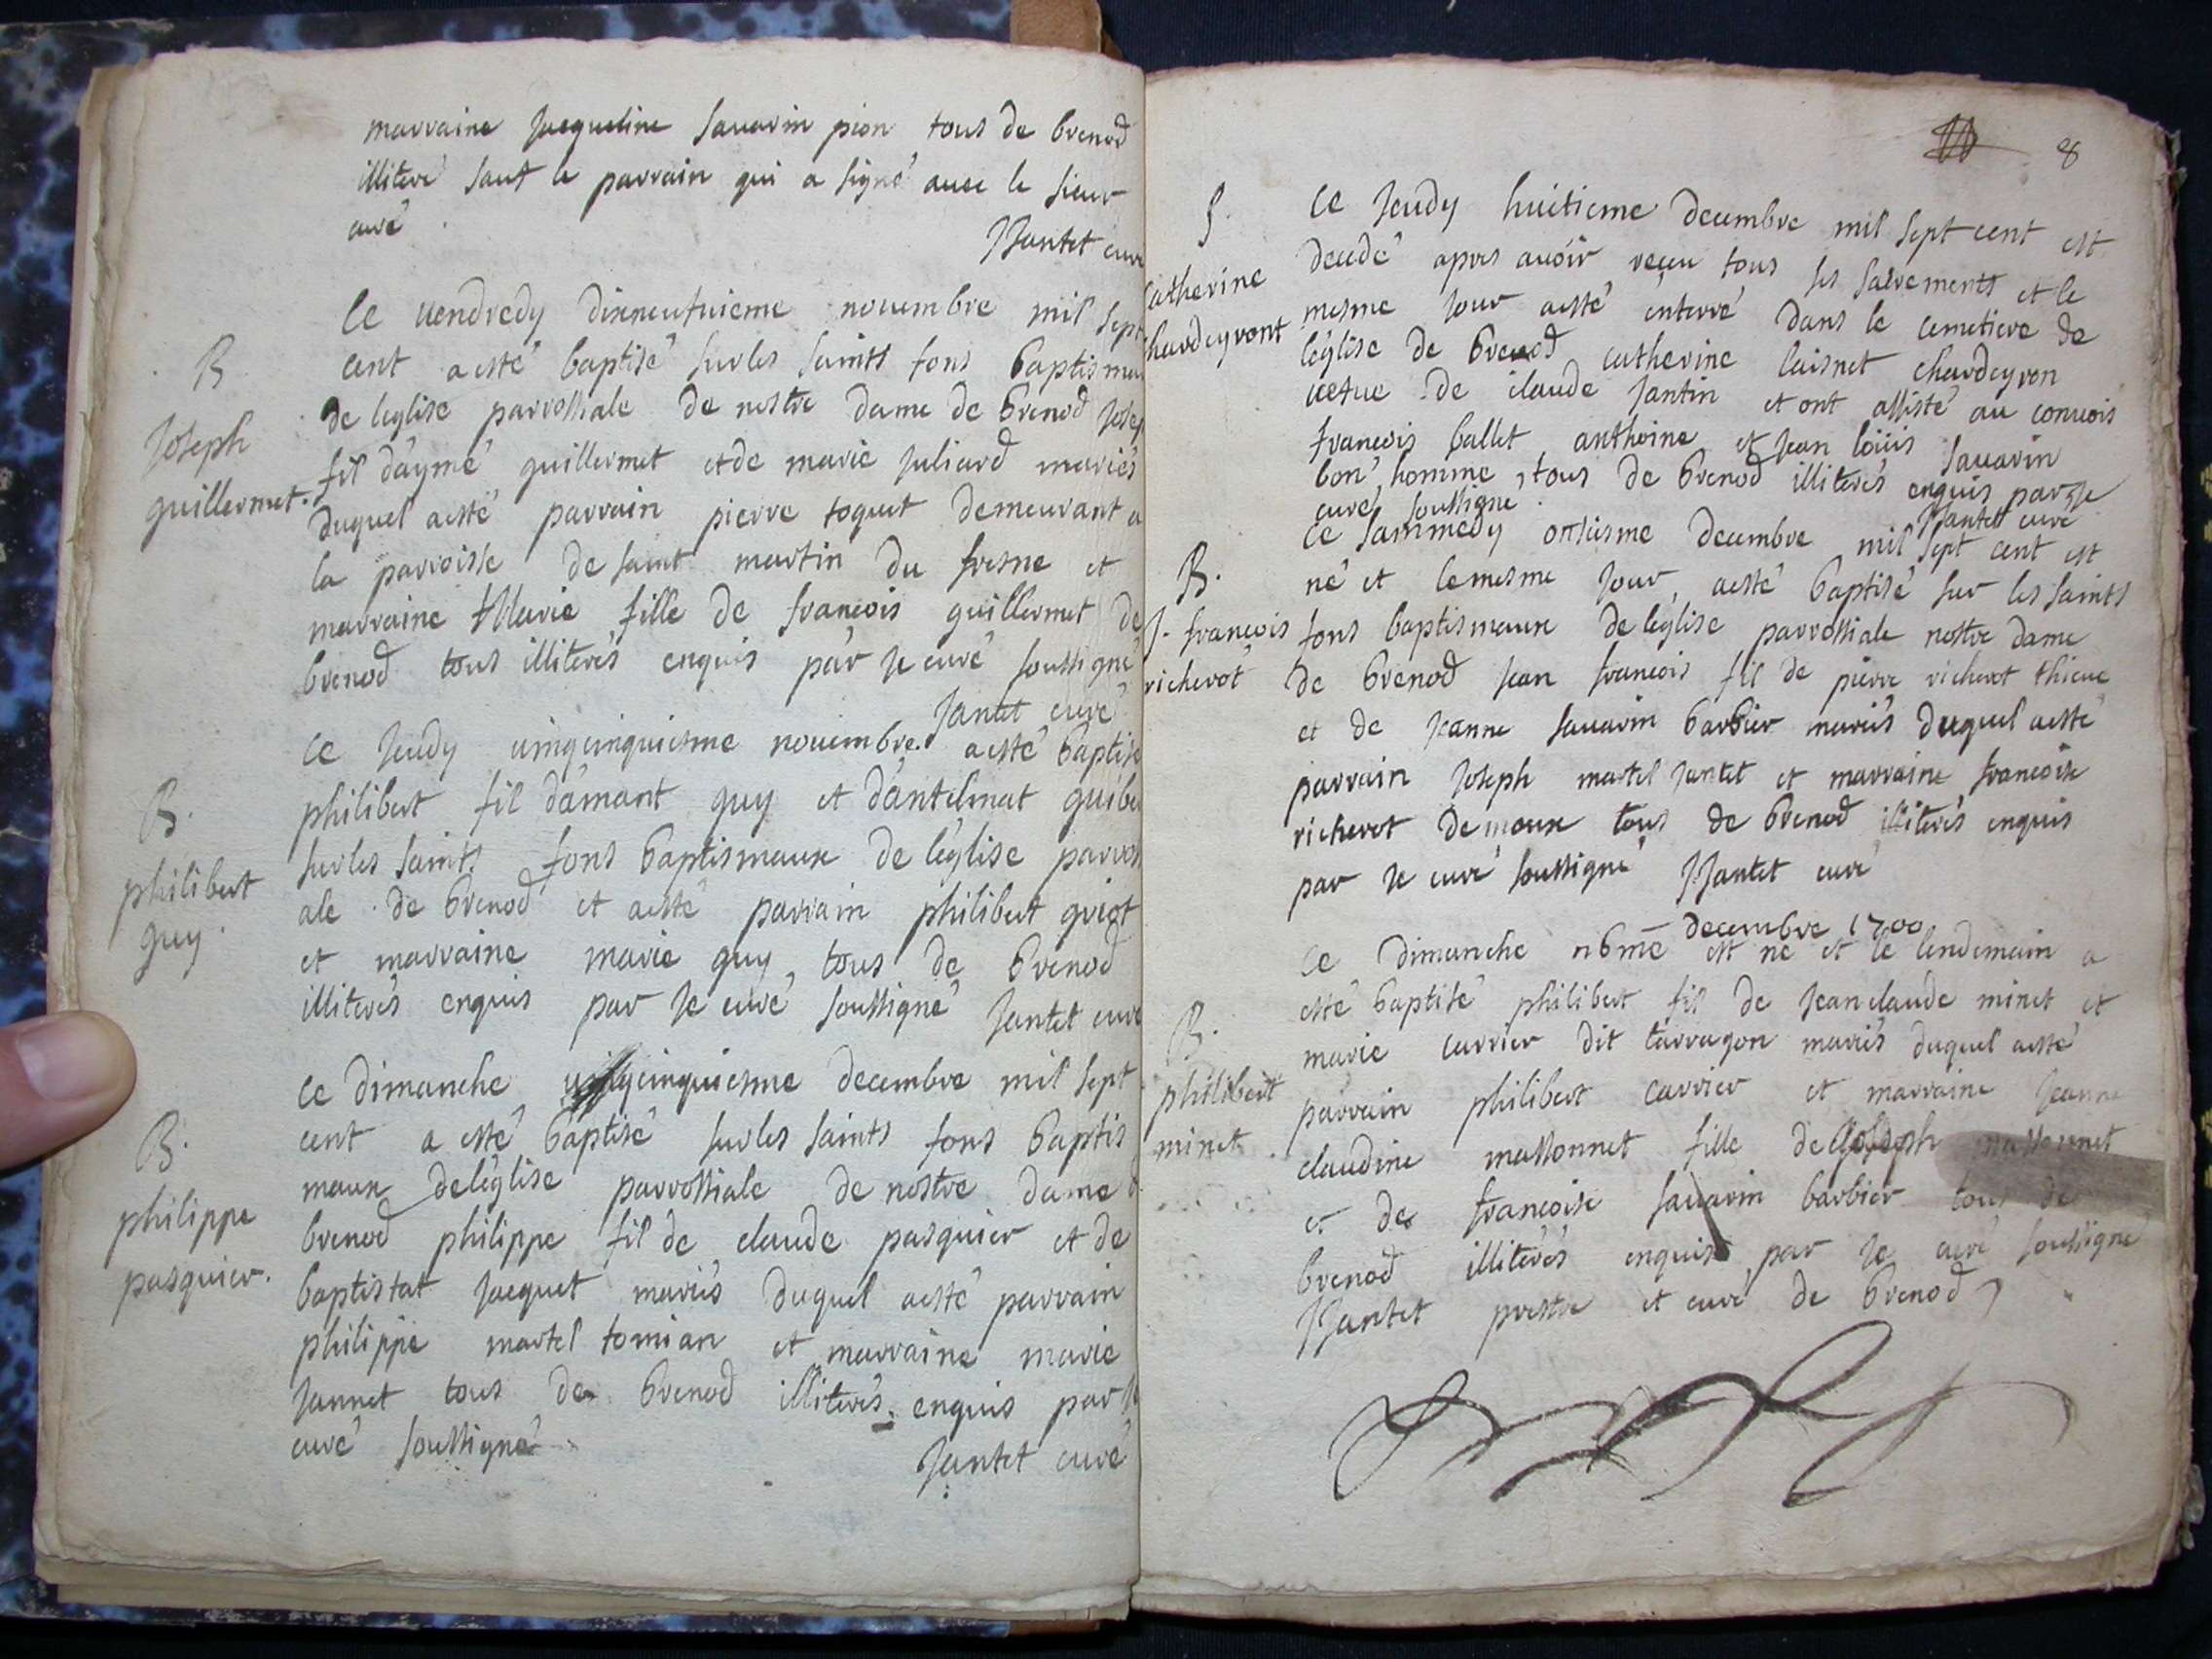 marraine Jacqueline sauarin pion tous de brenod
illiteré sauf le parrain qui a signé auec le sieur
curé
JJantet curé
Ce uendredy dixneufuieme nouembre mil sept
B
cent a esté baptisé sur les saints fons baptismau
de leglise parrossiale de nostre dame de brenod Josep
Joseph
guillermet.
fil daymé guillermet et de marie Juliard mariés
duquel a esté parrain pierre toquet demeurant a
la parroisse de saint martin du fresne et
marraine Marie fille de francois guillermet de
brenod tous illiterés enquis par Je curé soussigné
Jantet curé
Ce Jeudy uingcinquiesme nouembre a esté baptisé
B.
philibert
guy.
philibert fil damant guy et dantelmat guibe
sur les saints fons baptismaux de leglise parross
ale de brenod et a esté parrain philibert griot
et marraine marie guy tous de brenod
illiterés enquis par Je curé soussigné Jantet curé
Ce dimanche cinquiesme decembre mil sept
B.
philippe
pasquier.
cent a esté baptisé sur les saints fons baptis
maux de léglise parrossiale de nostre dame d
brenod philippe fil de claude pasquier et de
baptistat Jacquet mariés duquel a esté parrain
philippe martel tomian et marraine marie
Jannet tous de brenod illiterés enquis par Je
curé soussigné
Jantet curé
8
S.
Catherine
chardeyront
Ce Jeudy huitieme decembre mil sept cent est
decedé apres auoir receu tous ses sacrements et le
mesme Jour a esté enterré dans le cemetiere de
léglise de brenod catherine laisnet chardeyron
uefue de claude Jantin et ont assisté au conuois
francois ballet anthoine et Jean loüis sauarin
bon homme, tous de brenod illiterés enquis par Je
curé soussigné.
JJantet curé
Ce sammedy onsiesme decembre mil sept cent est
B.
J. francois
richerot
né et le mesme Jour, a esté baptisé sur les saints
fons baptismaux de léglise parrossiale nostre dame
de brenod Jean francois fil de pierre richerot thieue
et de Jeanne sauarin barbier mariés duquel a esté
parrain Joseph martel Jantet et marraine francoise
richerot demoux tous de brenod illiterés enquis
par Je curé soussigné JJantet curé
decembre 1700
Ce dimanche est né et le lendemain a
B.
philibert
minet
esté baptisé philibert fil de Jean claude minet et
marie carrier dit tarragon mariés duquel a esté
parrain philibert carrier et marraine Jeanne
claudine massonnet fille de Joseph massonnet
et de francoise sauarin barbier tous de
brenod illiterés enquis par Je curé soussigné
JJantet prestre et curé de brenod